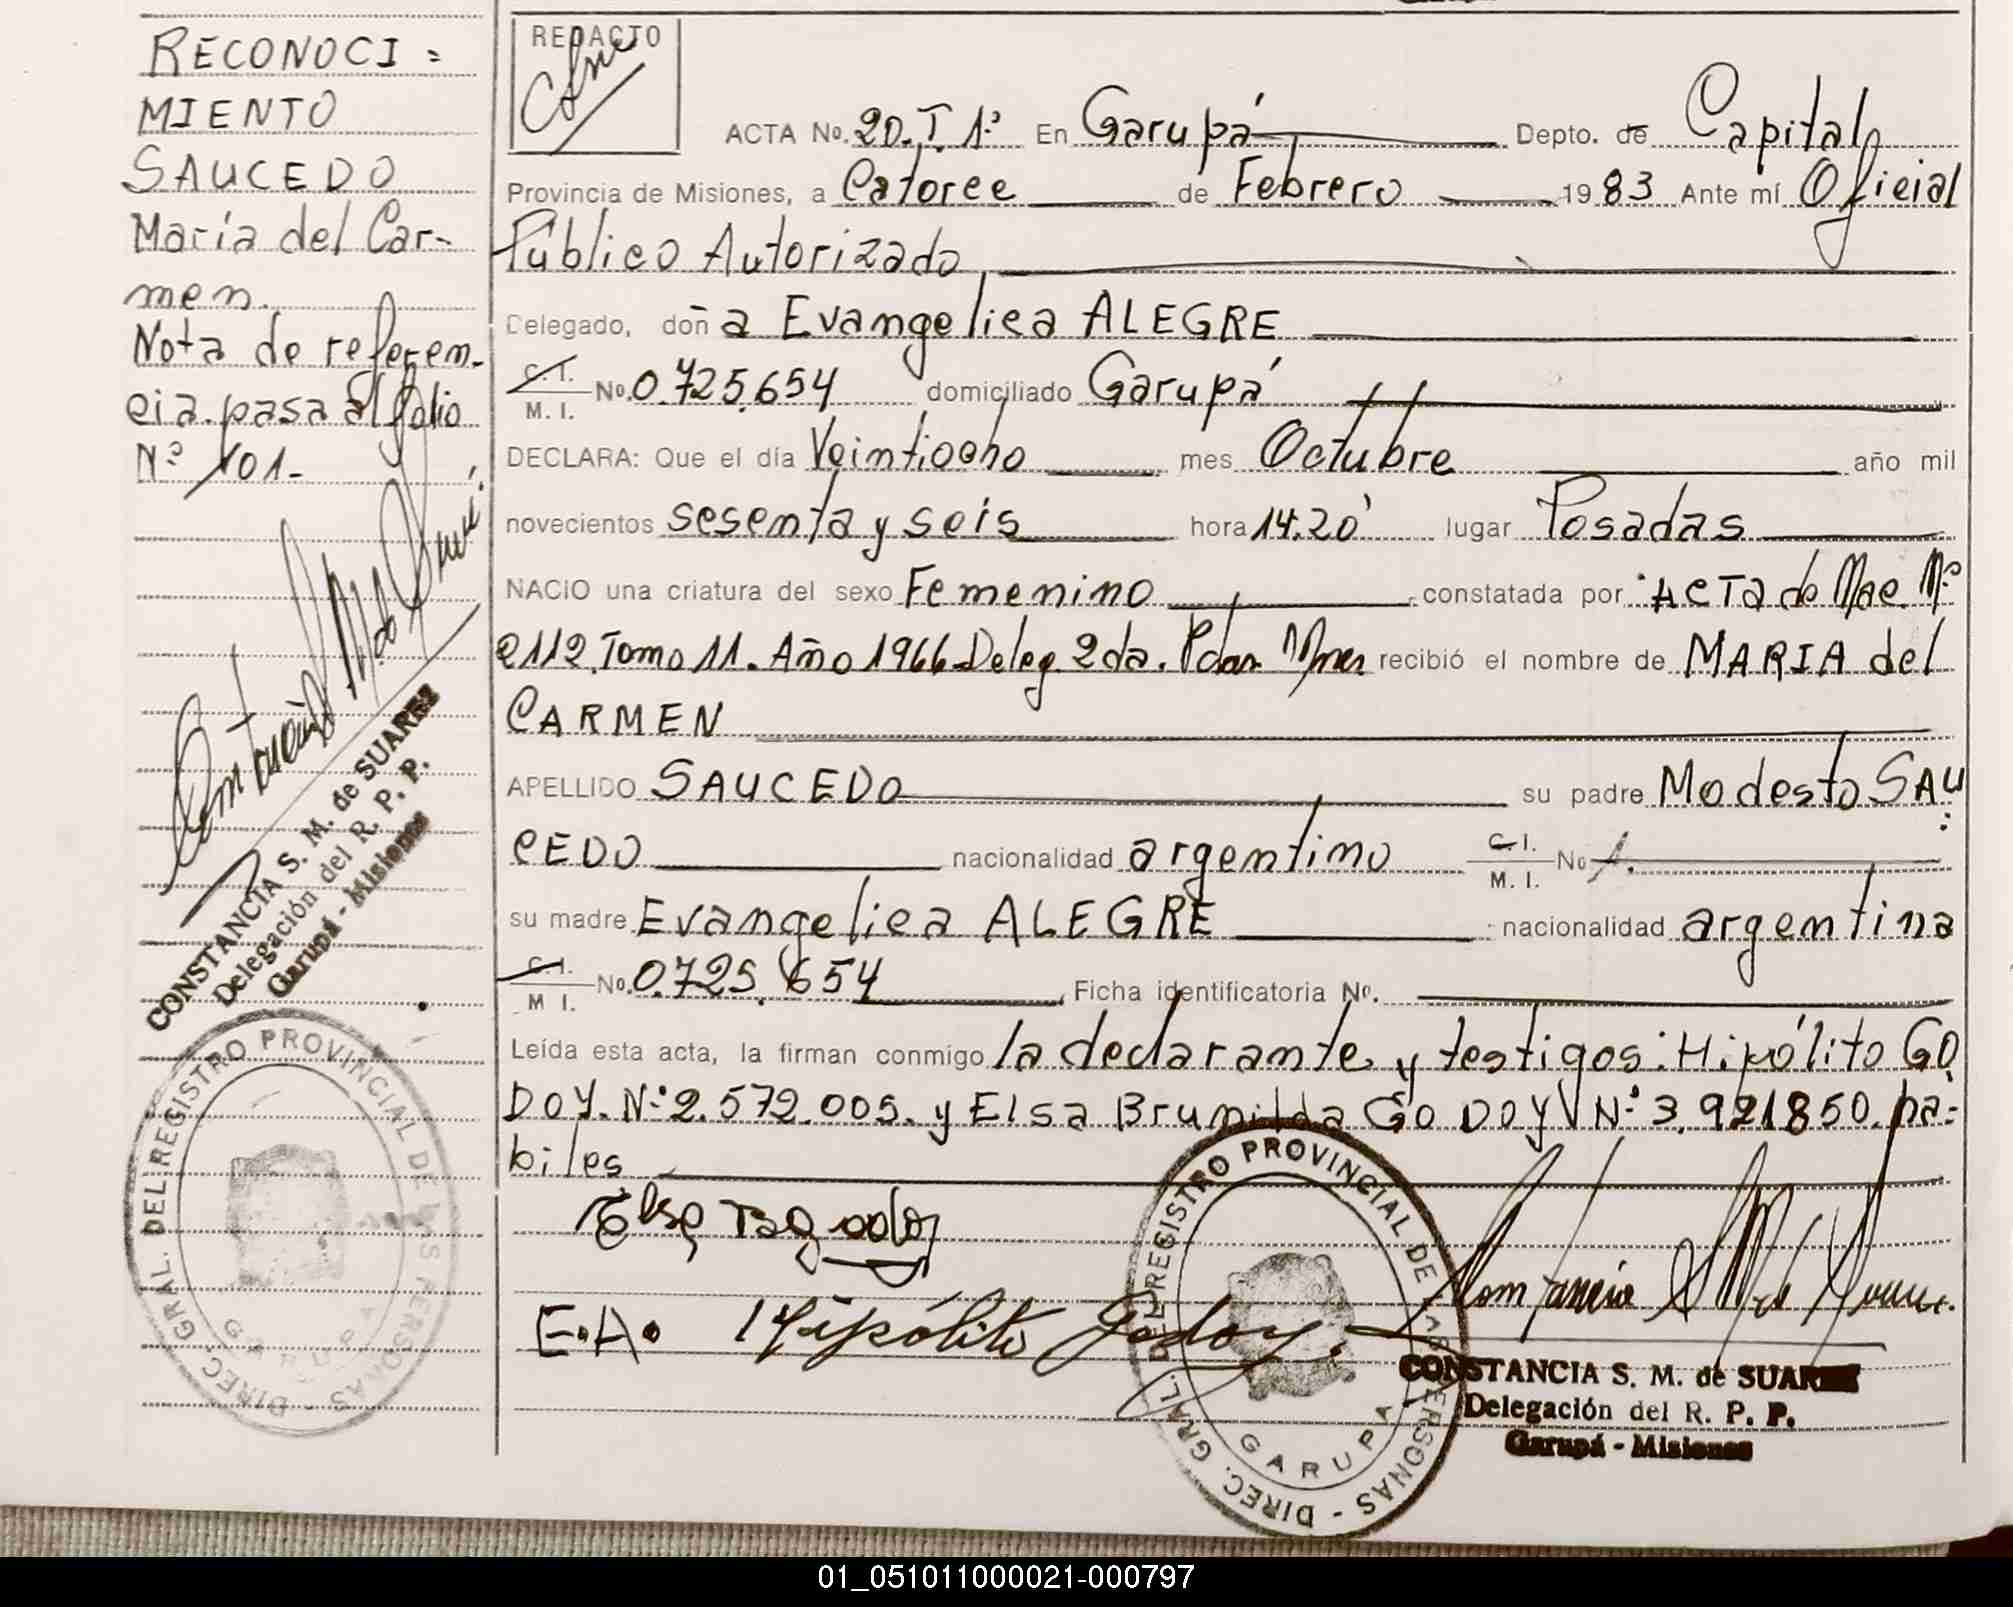 RECONOCI=
MIENTO
SAUCEDO
María del Car-
men.
Nota de referen-
cia. pasa al folio
Nº 101.
CONSTANCIA S. M. de SUAREZ
Delegación del R. P. P.
Garupá - Misiones
DIREC. GRAL. DEL REGISTRO PROVINCIAL DE LAS PERSONAS -
GARUPA
REDACTO
ACTA No. 20. T. 1º En Garupá Depto. de Capital
Provincia de Misiones, a Catorce de Febrero 1983 Ante mí Oficial
Público Autorizado
Delegado, doña Evangelica ALEGRE
C. I. / M. I. No. 0.725.654 domiciliado Garupá
DECLARA: Que el día Veintiocho mes Octubre año mil
novecientos sesenta y seis hora 14.20' lugar Posadas
NACIO una criatura del sexo Femenino constatada por ACTA de Nac. Nº
2112. Tomo 11. Año 1966 Deleg. 2da. Pdas. Mnes recibió el nombre de MARIA del
CARMEN
APELLIDO SAUCEDO su padre Modesto SAU
CEDO nacionalidad argentino C. I. / M. I. No
su madre Evangelica ALEGRE nacionalidad argentina
C. I. / M. I. No. 0.725.654 Ficha identificatoria No.
Leída esta acta, la firman conmigo la declarante y testigos: Hipólito GO
DOY. Nº 2.572.005. y Elsa Brunilda GODOY Nº 3.921850. ha=
biles
E.A. Hipólito Godoy.
DIREC. GRAL. DEL REGISTRO PROVINCIAL DE LAS PERSONAS -
GARUPA
CONSTANCIA S. M. de SUAREZ
Delegación del R. P. P.
Garupá - Misiones
01_051011000021-000797